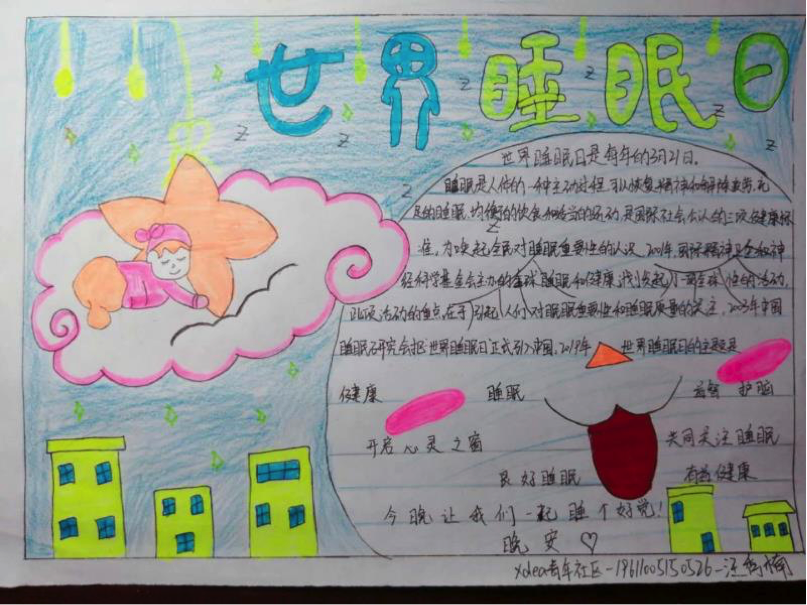 世界睡眠日
世界睡眠日是每年的3月21日。
睡眠是人体的一种主动过程,可以恢复精神和解除疲劳,充
足的睡眠、均衡的饮食和适当的运动,是国际社会公认的三项健康标
准,为唤起全民对睡眠重要性的认识,2001年,国际精神卫生和神
经科学基金会主办的全球睡眠和健康计划发起了一项全球性的活动,
此项活动的重点在于引起人们对睡眠重要性和睡眠质量的关注,2003年中国
睡眠研究会把世界睡眠日正式引入中国,2019年 世界睡眠日的主题是
健康 睡眠 益智 护脑
开启心灵之窗 共同关注睡眠
良好睡眠 有益健康
今晚让我们一起睡个好觉!
晚安♡
青年社区-19611005150526-汪